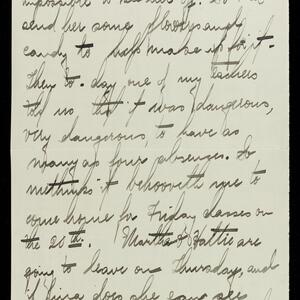 impossible to
send her some flowers and
candy to help make up for it.
They to-day one of my teachers
told us that it was dangerous,
very dangerous, to have as
many as four absences. So
methinks it behooveth me to
come home for Friday classes on
the 20th. Martha & Hattie are
going to leave on Thursday, and
does she